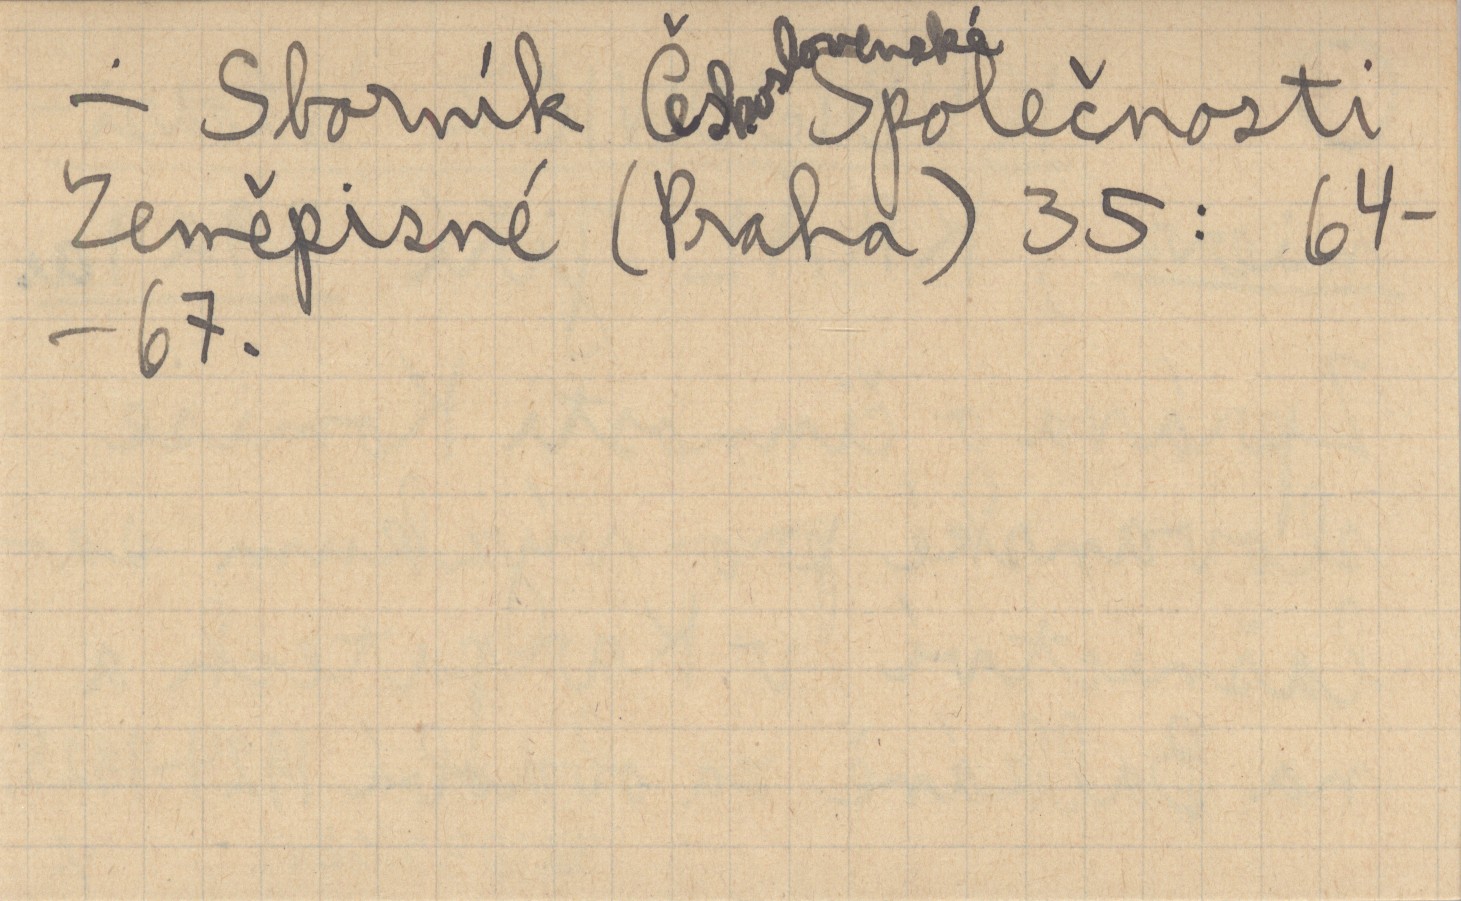 – Sborník Československá Společnosti
Zeměpisné (Praha) 35: 64-
-67.